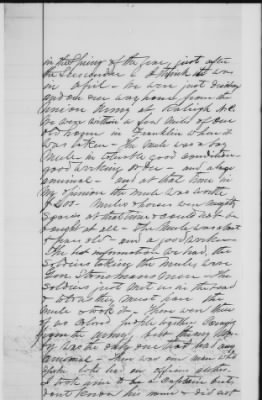 in the Spring of the year, just after
the Surrender I think it was
in April. We were just
and on our way home from the
Union Army at Raleigh N.C.
We were within a few miles of our
old home in Franklin when it
was taken. The mule was a bay
mule in tolerable good condition
good working order and a large
animal and at that time in
my opinion the mule was worth
$200. Mules & horses were mighty
scarce at that time could not be
bought at all. The mule was about
years old and a good worker.
The best information we had, the
soldiers taking the mule, were
Gen. Stoneman's men. The
soldiers just met us in the road
& told us they must have the
mule & took it. There were then
of us colored people together coming
from the army, but
was the only one that had any
animal. There was one man who
spoke like he was an officer
I took him to be a Captain but
dont know his name & did not